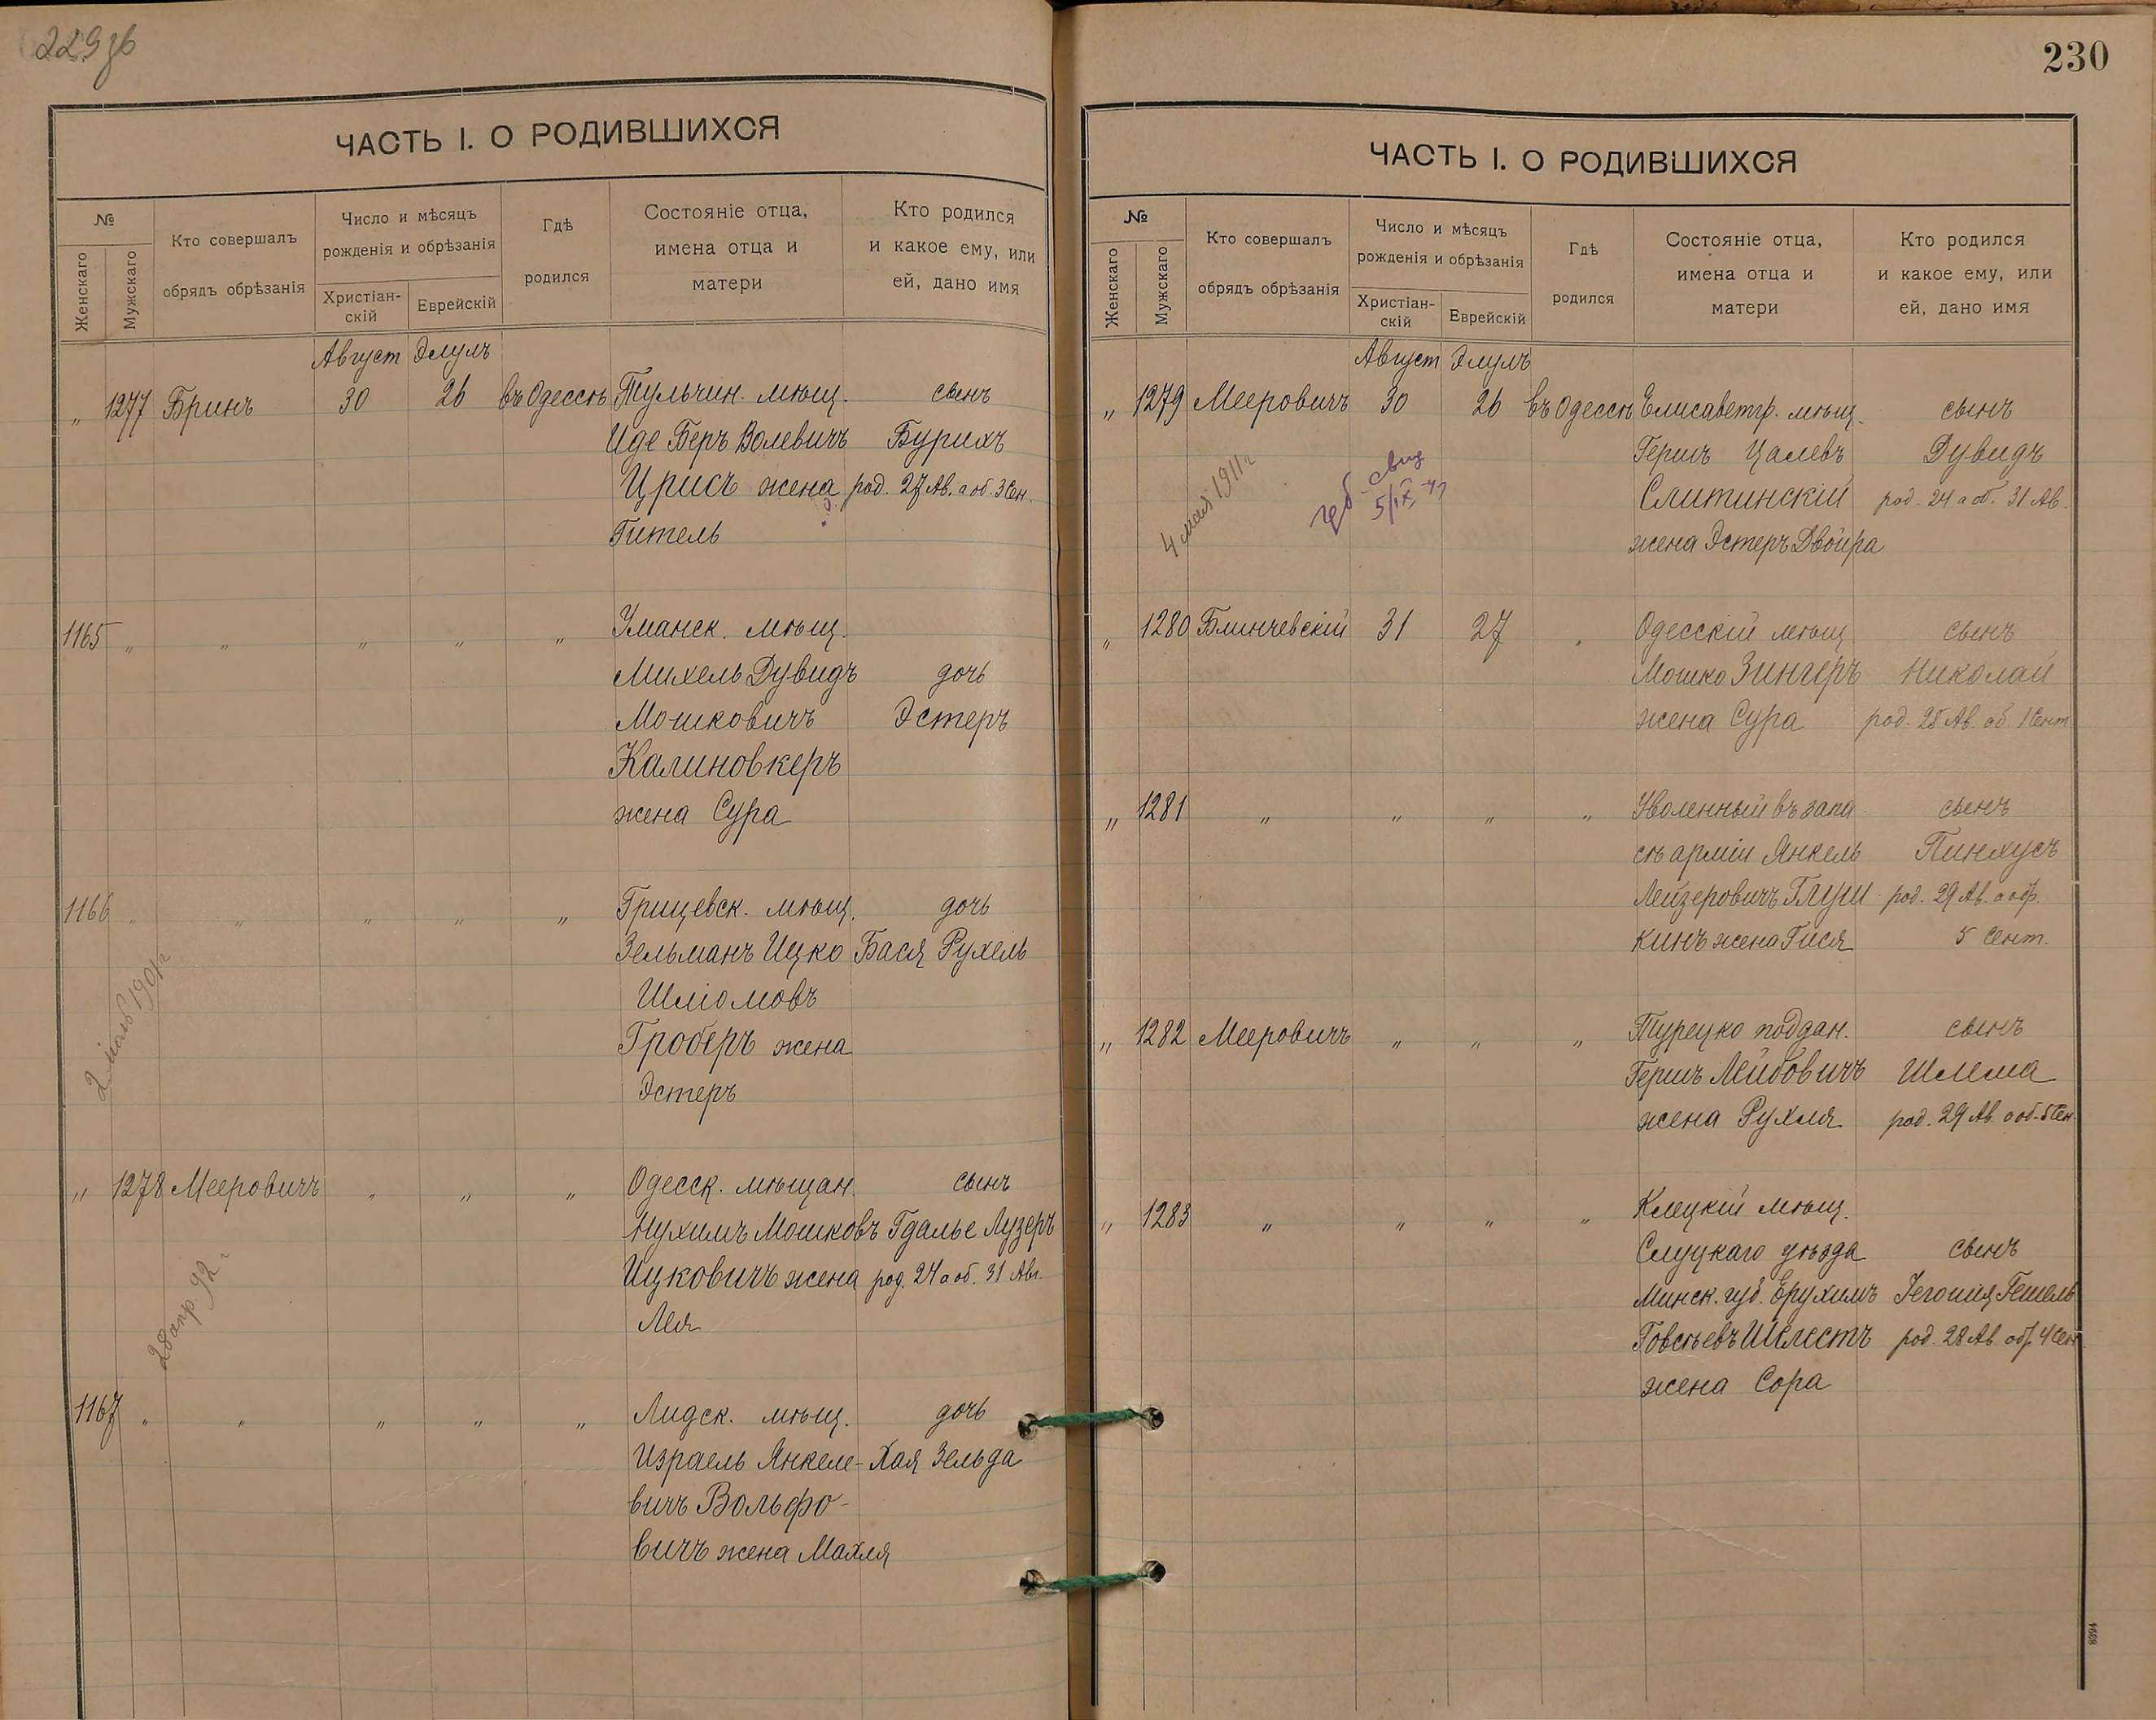 229 об
ЧАСТЬ I. О РОДИВШИХСЯ
№
Женскаго
Мужскаго
Кто совершалъ
обрядъ обрѣзанія
Число и мѣсяцъ
рожденія и обрѣзанія
Христіан-
скій
Еврейскій
Гдѣ
родился
Состояніе отца,
имена отца и
матери
Кто родился
и какое ему, или
ей, дано имя
Август Элулъ
„ 1277 Бринъ 30 26 въ Одессѣ Тульчин. мѣщ. сынъ
Иде Беръ Волевичъ Бурихъ
Црисъ жена род. 27 Ав. а об. 3 Сен.
Гитель
1165 „ „ „ „ „ Уманск. мѣщ.
Михель Дувидъ дочь
Мошковичъ Эстеръ
Калиновкеръ
жена Сура
1166 „ „ „ „ „ Грицевск. мѣщ. дочь
Зельманъ Ицко Бася Рухель
Шліомовъ
Гроберъ жена
Эстеръ
„ 1278 Мееровичъ „ „ „ Одесск. мѣщан. сынъ
Нухимъ Мошковъ Гдалье Лузеръ
Ицковичъ жена род. 24 а об. 31 Авг.
Лея
28 апр. 92 г
1167 „ „ „ „ „ Лидск. мѣщ. дочь
Израель Янкеле- Хая Зельда
вичъ Вольфо-
вичъ жена Махля
230
ЧАСТЬ I. О РОДИВШИХСЯ
№
Женскаго
Мужскаго
Кто совершалъ
обрядъ обрѣзанія
Число и мѣсяцъ
рожденія и обрѣзанія
Христіан-
скій
Еврейскій
Гдѣ
родился
Состояніе отца,
имена отца и
матери
Кто родился
и какое ему, или
ей, дано имя
Август Элулъ
„ 1279 Мееровичъ 30 26 въ Одессѣ Елисаветгр. мѣщ. сынъ
Гершъ Цалевъ Дувидъ
Слитинскій род. 24 а об. 31 Ав.
жена Эстеръ Двойра
4 мая 1911 г
„ 1280 Блинчевскій 31 27 „ Одесскій мѣщ сынъ
Мошко Зингеръ Николай
жена Сура род. 25 Ав. об 1 Сент.
„ 1281 „ „ „ „ Уволенный въ запа- сынъ
сѣ арміи Янкель Пинхусъ
Лейзеровичъ Глуш- род. 29 Ав. а обр.
кинъ жена Гися 5 Сент.
„ 1282 Мееровичъ „ „ „ Турецко поддан. сынъ
Гершъ Лейбовичъ Шлема
жена Рухля род. 29 Ав. а об. 5 Сен.
„ 1283 „ „ „ „ Клецкій мѣщ.
Слуцкаго уѣзда сынъ
Минск. губ. Ерухимъ Іегошия Гешель
Говсѣевъ Шелестъ род. 28 Ав. обр. 4 Сен.
жена Сора
8394